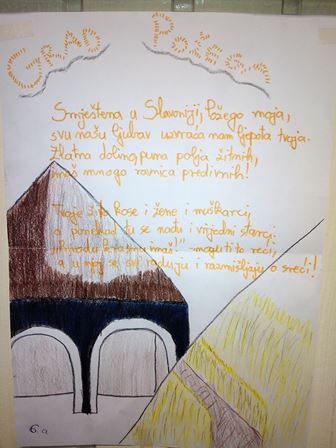 GRAD POŽEGA
Smještena u Slavoniji, Požego moja,
svu našu ljubav uzvraća nam ljepota tvoja.
Zlatna dolino, puna polja žitnih,
imaš mnogo ravnica predivnih!
Tvoje žito kose i žene i muškarci,
a ponekad tu se nađu i vrijedni starci.
"Prirodu krasnu imaš!" - mogu ti to reći,
a u njoj se svi raduju i razmišljaju o sreći!
6.a